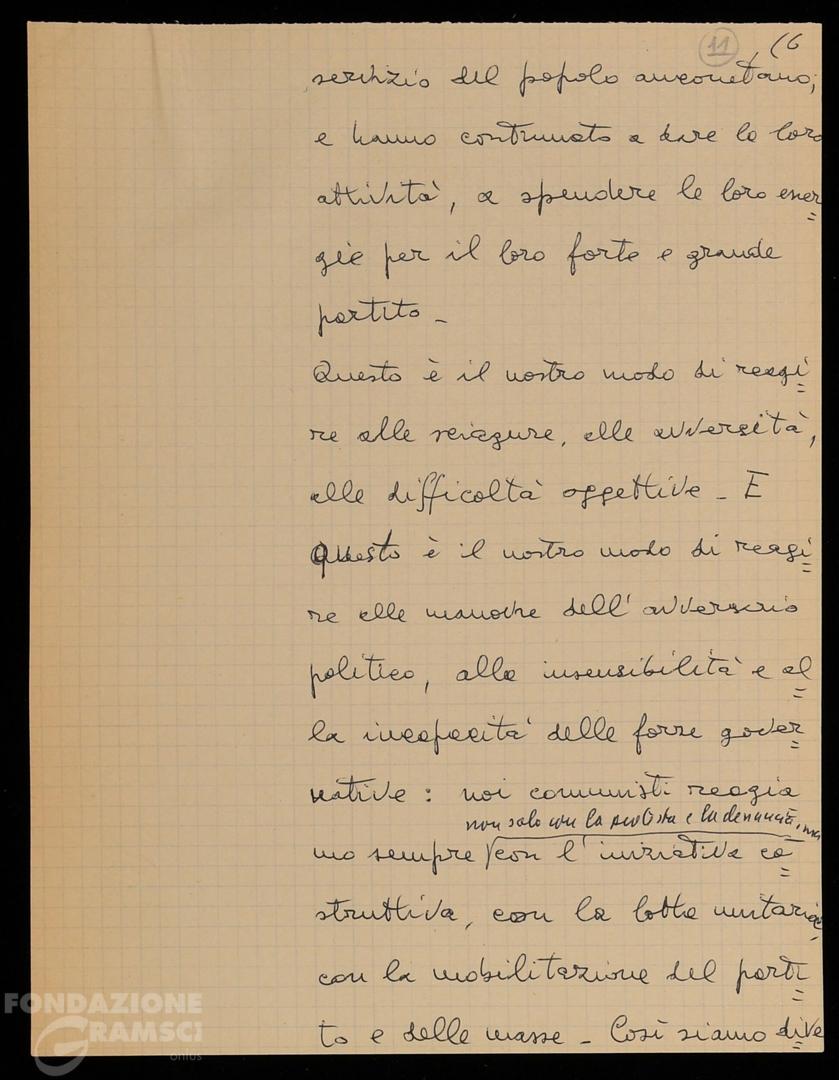 11 16
servizio del popolo anconetano,
e hanno continuato a dare la loro
attività, a spendere le loro ener=
gie per il loro forte e grande
partito -
Questo è il nostro modo di reagi=
re alle sciagure, alle avversità,
alle difficoltà oggettive - E
questo è il nostro modo di reagi=
re alle manovre dell'avversario
politico, alla insensibilità e al=
la incapacità delle forze gover=
native : noi comunisti reagia
non solo con la protesta e la denuncia, ma
mo sempre con l'iniziativa co=
struttiva, con la lotta unitaria,
con la mobilitazione del parti=
to e delle masse - Così siamo dive=
FONDAZIONE
GRAMSCI
onlus